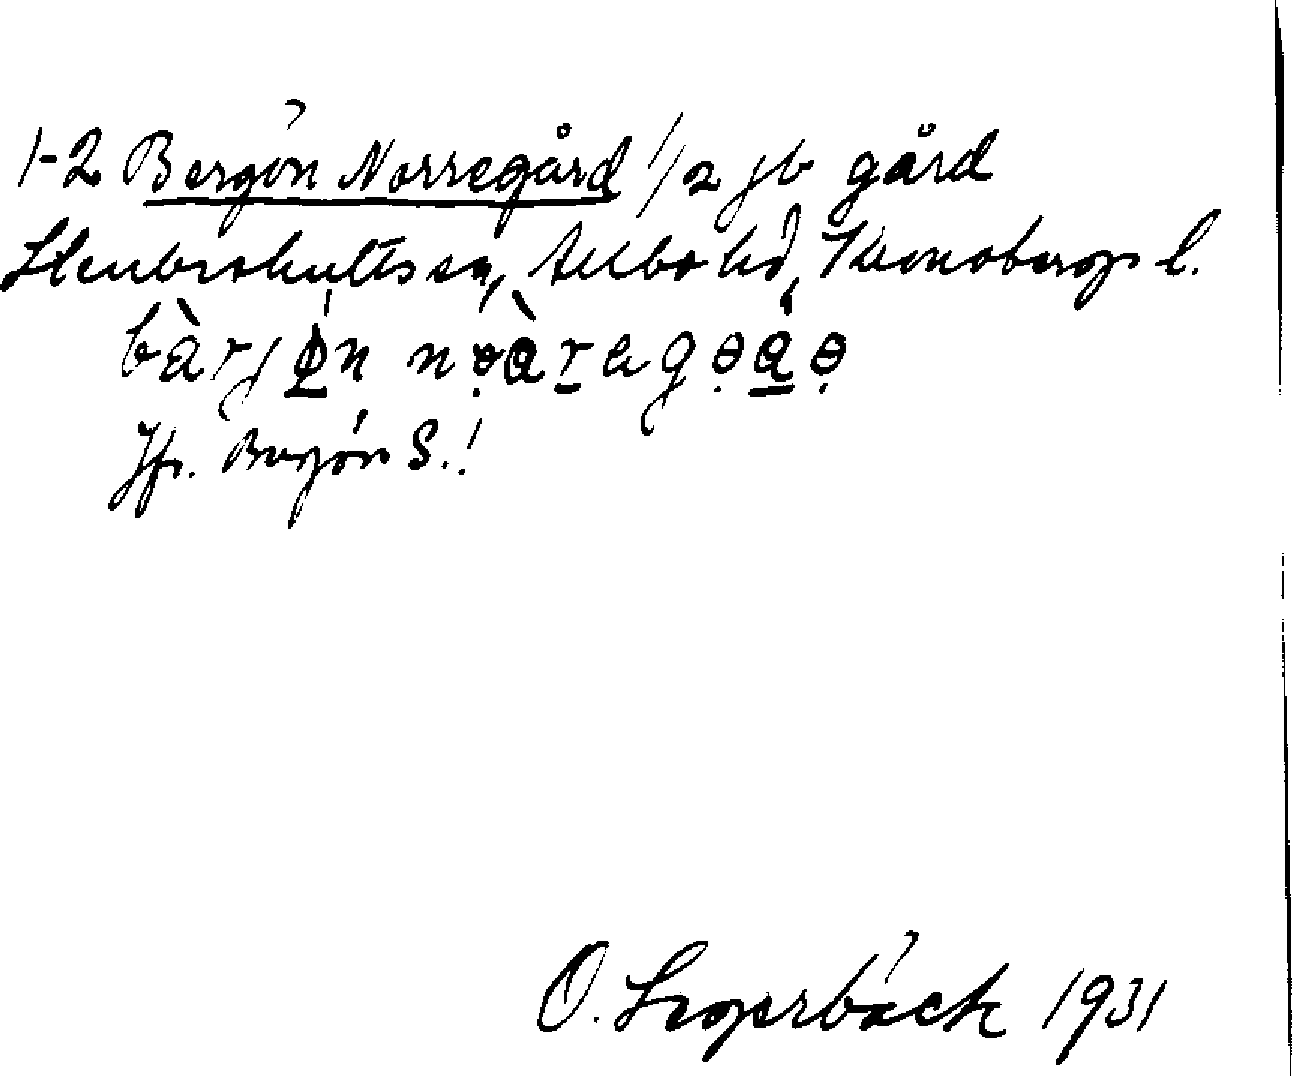 1-2 Bergön Norregård 1/2 jb gård
Stenbrohults sn, Allbo hd, Kronobergs l.
bàrjǿn nəàragəáə
Jfr. Bergön S.!
O. Segerbäck 1931